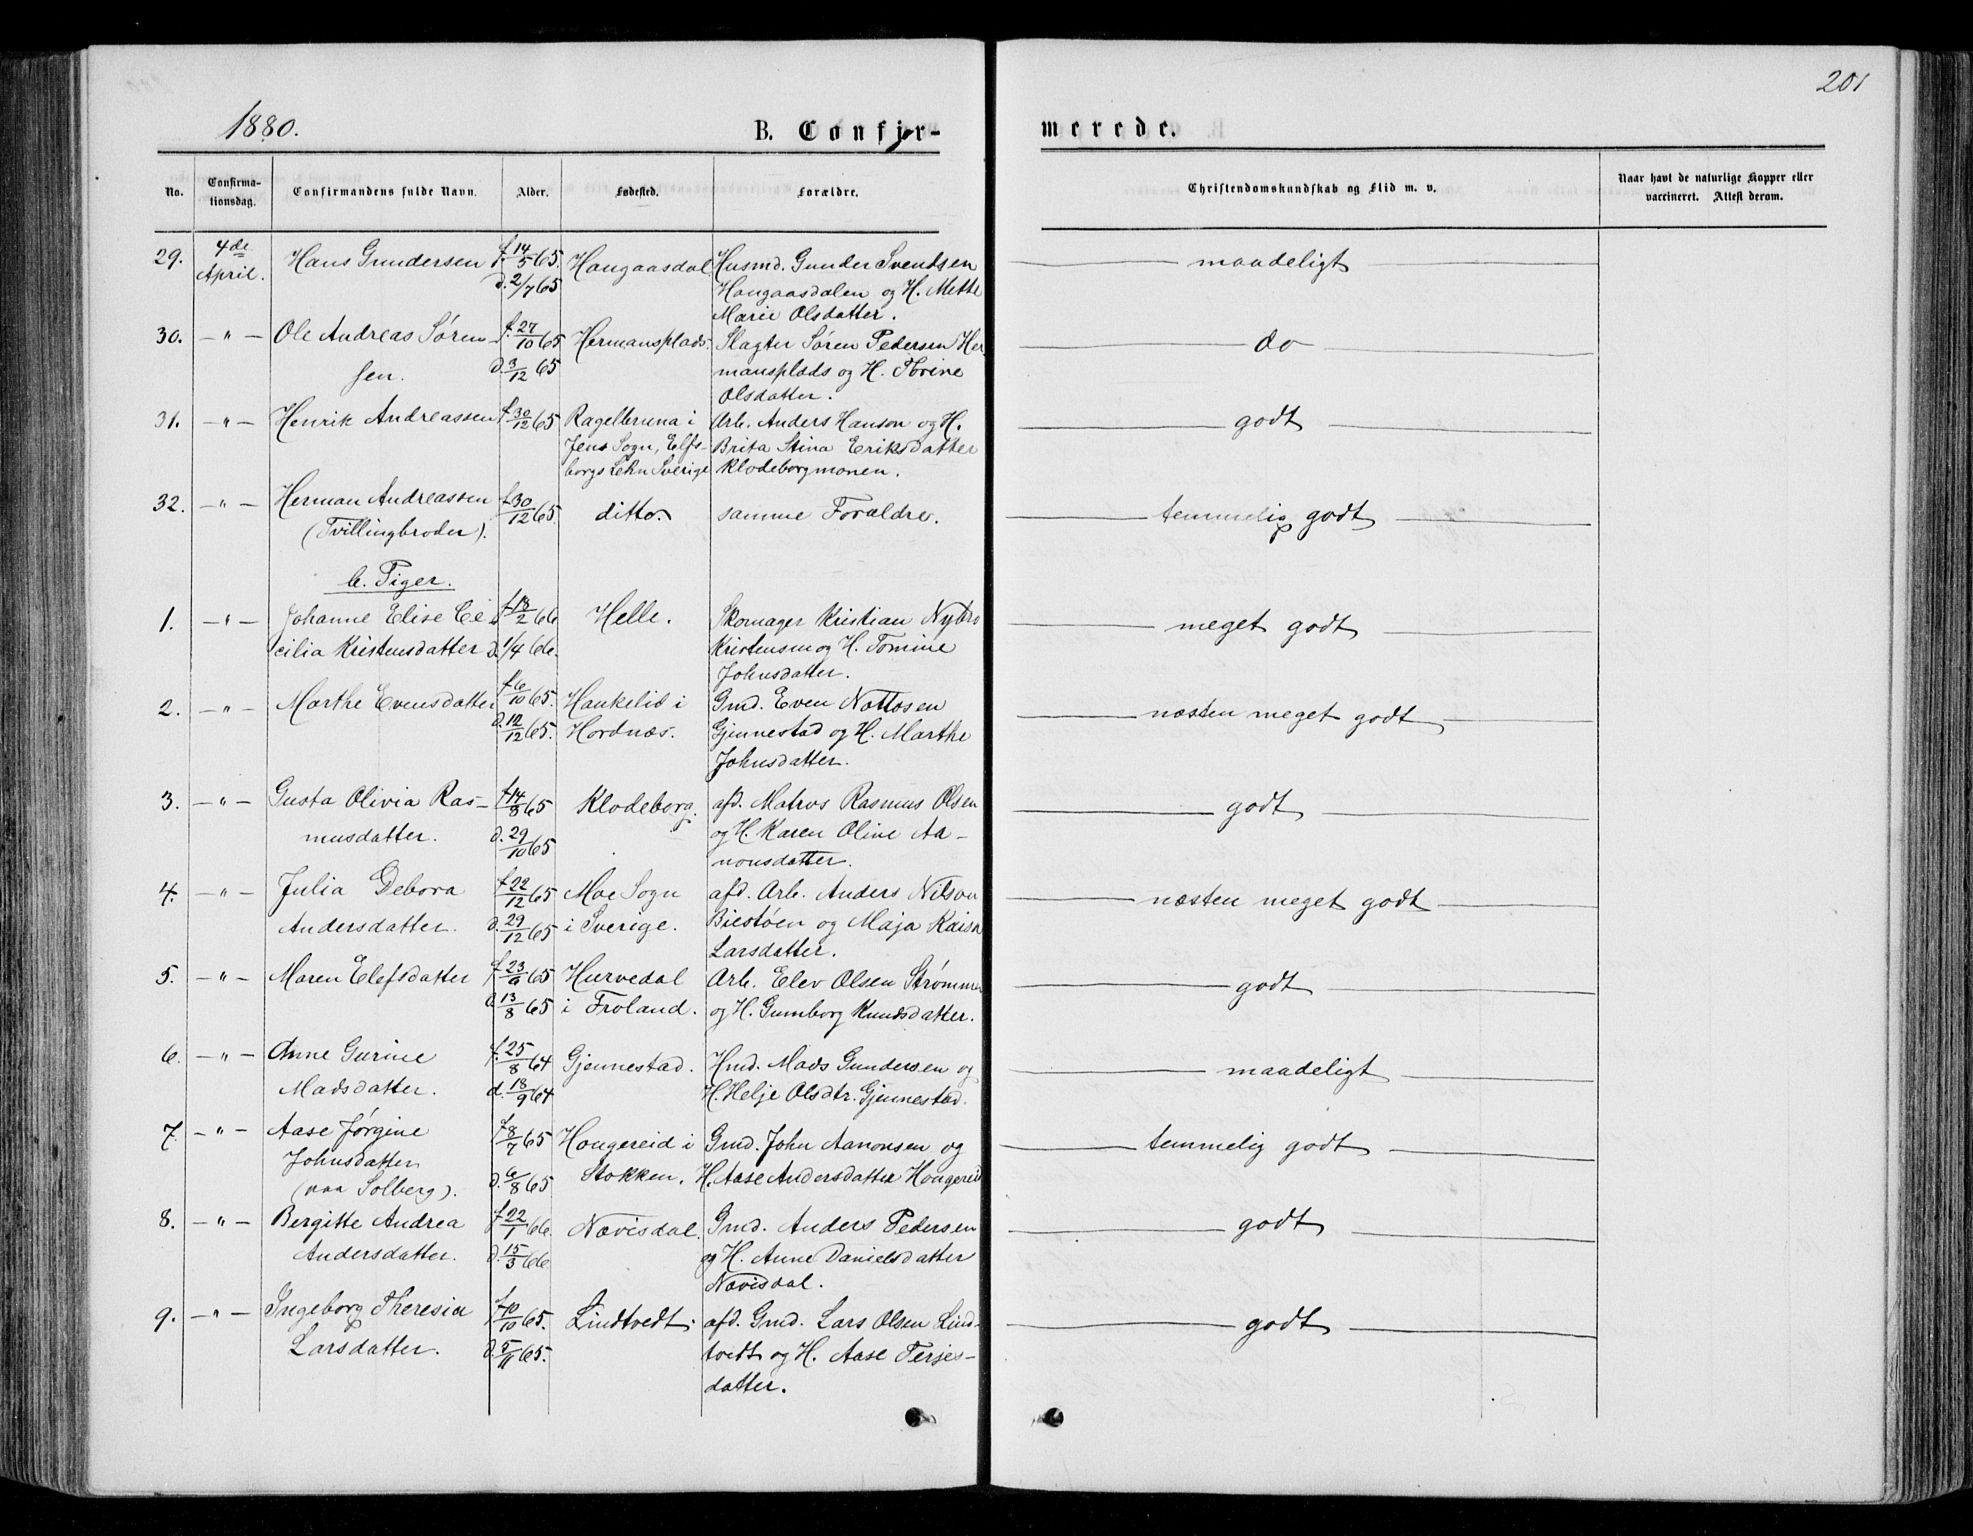 201
1880.
B. Confir-
merede.
No.
Confirma-
tionsdag.
Confirmandens fulde Navn.
Alder.
Fødested.
Forældre.
Christendomskundskab og Flid m. v.
Naar havt de naturlige Kopper eller
vaccineret. Attest derom.
29. 4de Hans Gundersen f. 14/5 65. Hougaasdal Husmd. Gunder Svendsen maadeligt
April. d. 2/7 65 Hougaasdalen og H. Mette
Marie Olsdatter.
30. - " - Ole Andreas Søren- f. 27/10 65 Hermansplads. Slagter Søren Pedersen Her- do
sen. d. 3/12 65 mansplads og H. Thrine
Olsdatter.
31. - " - Henrik Andreassen f. 30/12 65 Ragelbruna i Arb. Anders Hanson og H. godt
Jens Sogn, Elfs- Brita Stina Eriksdatter
borgs Lehn Sverige Klodeborgmonen.
32. - " - Herman Andreassen f. 30/12 65 ditto. samme Forældre. temmelig godt
(Tvillingbroder).
b. Piger.
1. - " - Johanne Elise Ce- f. 18/2 66 Helle. Skomager Kristian Nybro meget godt
cilia Kristensdatter d. 1/4 66. Kristensen og H. Tomine
Johnsdatter.
2. - " - Marthe Evensdatter f. 6/10 65. Haukelid i Gmd. Even Nottosen næsten meget godt
d. 10/12 65. Hordnæs. Gjennestad og H. Marthe
Johnsdatter.
3. - " - Gusta Olivia Ras- f. 14/8 65 Klodeborg. afd. Matros Rasmus Olsen godt
musdatter. d. 29/10 65 og H. Karen Oline Aa-
nonsdatter.
4. - " - Julia Debora f. 22/12 65 Moe Sogn afd. Arb. Anders Nilson næsten meget godt
Andersdatter. d. 29/12 65 i Sverige. Biestøen og Maja Kaisa
Larsdatter.
5. - " - Maren Elefsdatter f. 23/6 65 Hurvedal Arb. Elev Olsen Strømmen godt
d. 13/8 65 i Froland. og H. Gunborg Knudsdatter.
6. - " - Anne Gurine f. 25/8 64 Gjennestad. Hmd. Mads Gundersen og maadeligt
Madsdatter. d. 18/9 64 H. Helje Olsdtr. Gjennestad.
7. - " - Aase Jørgine f. 8/7 65 Hougereid i Gmd. John Aanonsen og temmelig godt
Johnsdatter d. 6/8 65 Stokken. H. Aase Andersdatter Hougereid
(paa Solberg).
8. - " - Bergitte Andrea f. 22/1 66. Nævisdal. Gmd. Anders Pedersen godt
Andersdatter. d. 15/3 66 og H. Anne Danielsdatter
Nævisdal.
9. - " - Ingeborg Theresia f. 10/10 65. Lindtvedt. afd. Gmd. Lars Olsen Lind- godt
Larsdatter. d. 5/11 65. tvedt og H. Aase Terjes-
datter.